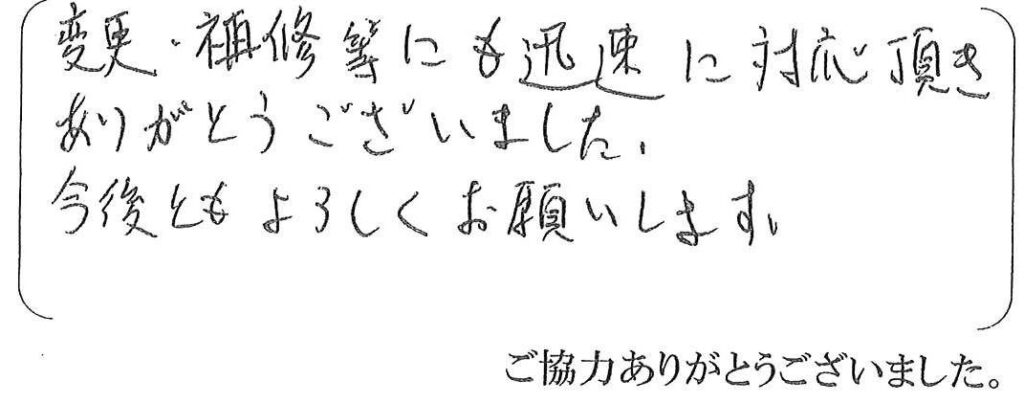 変更・補修等にも迅速に対応頂き
ありがとうございました。
今後ともよろしくお願いします。
ご協力ありがとうございました。